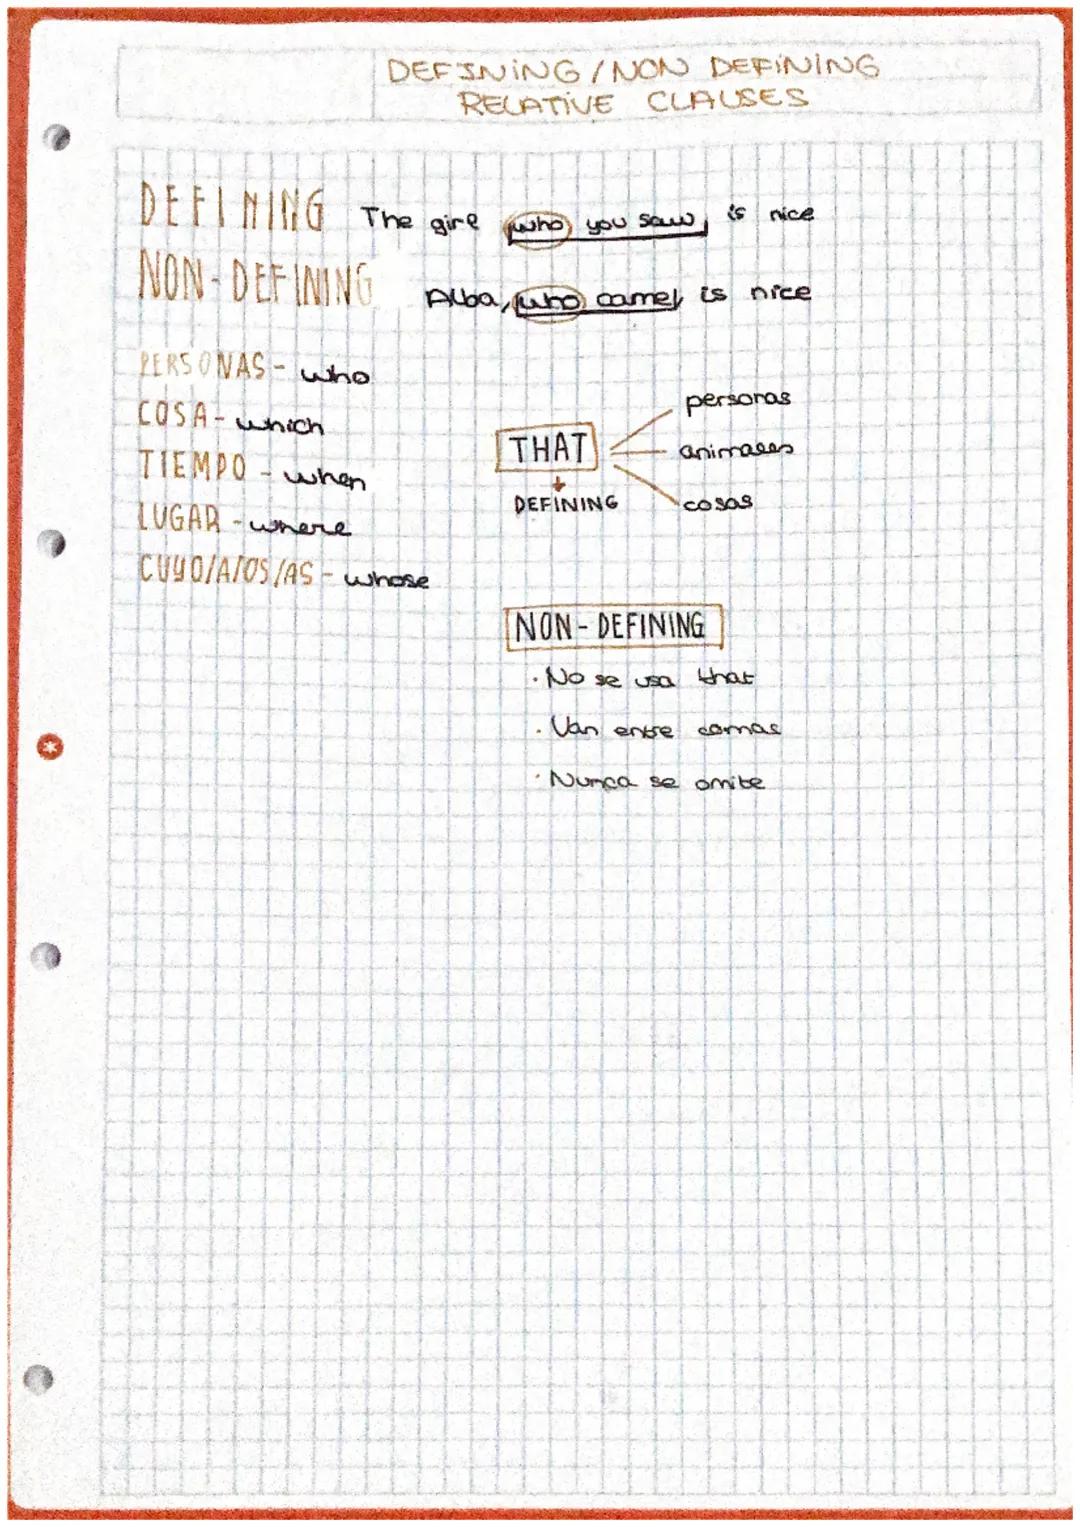 DEFINING / NON DEFINING
RELATIVE CLAUSES
DEFINING The girl who you saw, is nice
NON-DEFINING Alba, who came, is nice
PERSONAS - who
COSA - which
TIEMPO - when
LUGAR - where
CUYO/A/OS/AS - whose
THAT
DEFINING
personas
animales
cosas
NON-DEFINING
· No se usa that
· Van entre comas
· Nunca se omite